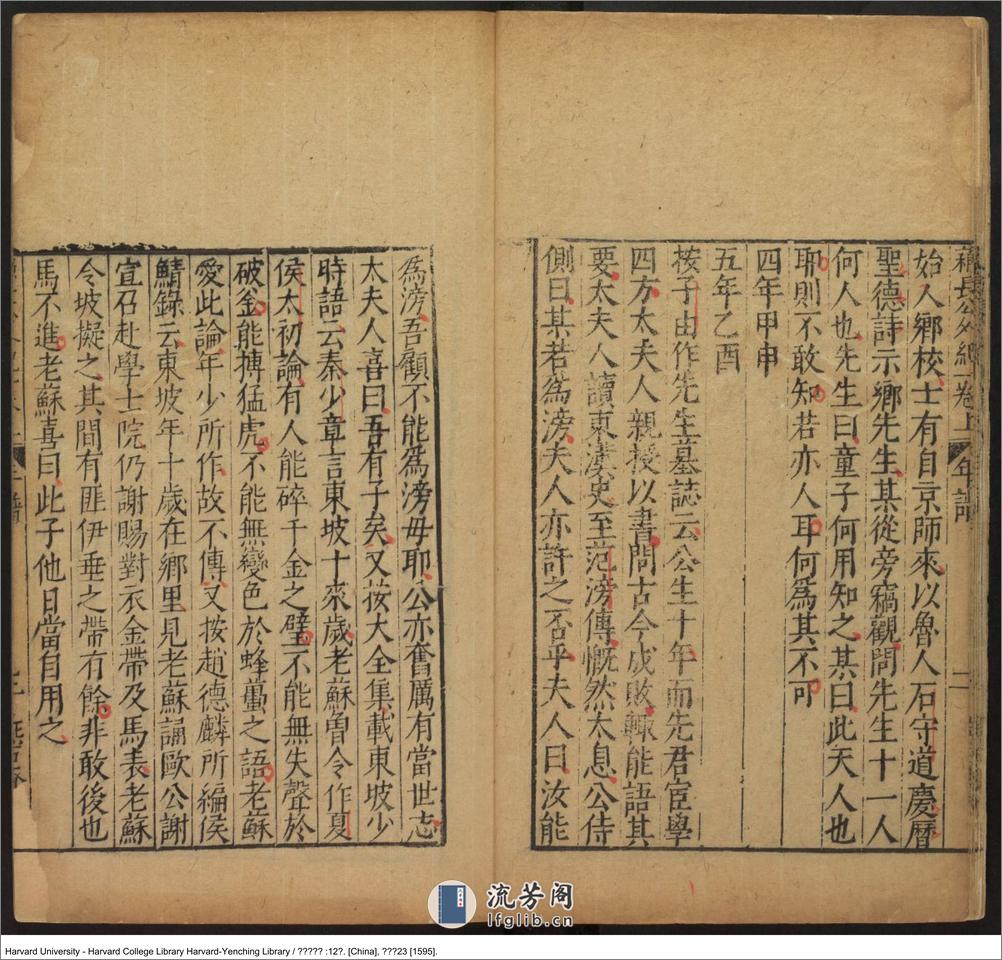 蘇長公外紀卷上 年譜 二
始入鄉校士有自京師來以魯人石守道慶曆
聖德詩示鄉先生某從旁竊觀問先生十一人
何人也先生曰童子何用知之某曰此天人也
耶則不敢知若亦人耳何爲其不可
四年甲申
五年乙酉
按子由作先生墓誌云公生十年而先君宦學
四方太夫人親授以書問古今成敗輒能語其
要太夫人讀東漢史至范滂傳慨然太息公侍
側曰某若爲滂夫人亦許之否乎夫人曰汝能
爲滂吾顧不能爲滂母耶公亦奮厲有當世志
太夫人喜曰吾有子矣又按大全集載東坡少
時語云秦少章言東坡十來歲老蘇曾令作夏
侯太初論有人能碎千金之璧不能無失聲於
破釜能搏猛虎不能無變色於蜂蠆之語老蘇
愛此論年少所作故不傳又按趙德麟所編侯
鯖錄云東坡年十歲在鄉里見老蘇誦歐公謝
宣召赴學士院仍謝賜對衣金帶及馬表老蘇
令坡擬之其間有匪伊垂之帶有餘非敢後也
馬不進老蘇喜曰此子他日當自用之
流芳阁
lfglib.cn
Harvard University - Harvard College Library Harvard-Yenching Library / ????? :12?. [China], ???23 [1595].